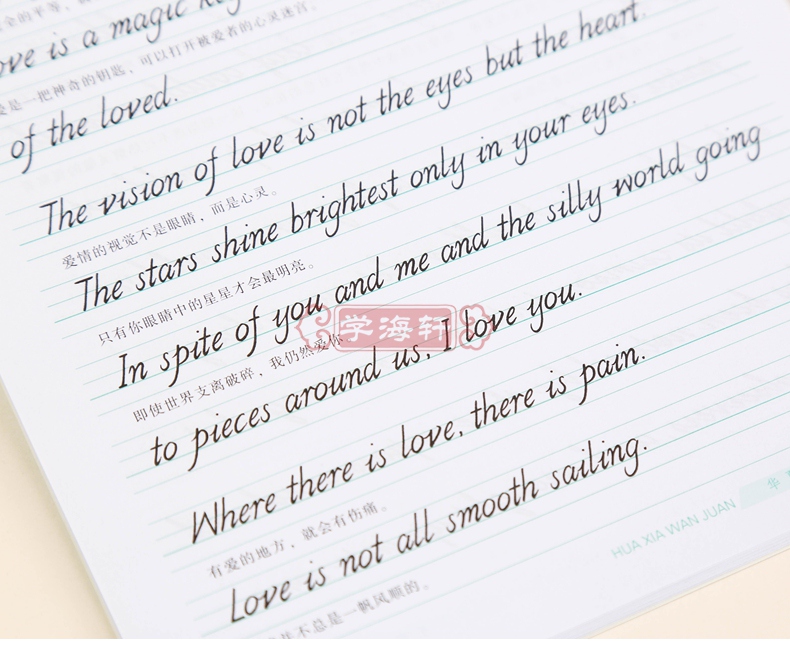 全的平等，就
ove is a magic key
爱是一把神奇的钥匙，可以打开被爱者的心灵迷宫。
of the loved.
The vision of love is not the eyes but the heart.
爱情的视觉不是眼睛，而是心灵。
The stars shine brightest only in your eyes.
只有你眼睛中的星星才会最明亮。
In spite of you and me and the silly world going
即使世界支离破碎，我仍然爱你。
学海轩
to pieces around us, I love you.
Where there is love, there is pain.
有爱的地方，就会有伤痛。
Love is not all smooth sailing.
并不总是一帆风顺的。
HUA XIA WAN JUAN
华